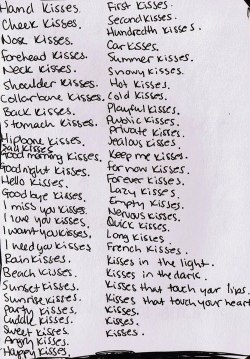 Hand kisses.
Cheek kisses.
Nose kisses.
Forehead kisses.
Neck kisses.
shoulder kisses.
Collarbone kisses.
Back kisses.
Stomach kisses.
Hipbone kisses.
kisses
Good morning kisses.
Goodnight kisses.
Hello kisses.
Goodbye kisses.
I miss you kisses.
I love you kisses.
I want you kisses.
I need you kisses
Rain kisses.
Beach kisses.
Sunset kisses.
Sunrise kisses.
Party kisses.
Cuddle kisses.
Sweet kisses.
Angry kisses.
Happy kisses.
First kisses.
Second kisses.
Hundredth kisses.
Car kisses.
Summer kisses.
Snowy kisses.
Hot kisses.
Cold kisses.
Playful kisses.
Public kisses.
Private kisses.
Jealous kisses.
Keep me kisses.
for now kisses.
Forever kisses.
Lazy kisses.
Empty kisses.
Nervous kisses.
Quick kisses.
Long kisses.
French kisses.
Kisses in the light.
Kisses in the dark.
Kisses that touch your lips.
Kisses that touch your heart
Kisses.
Kisses.
Kisses.